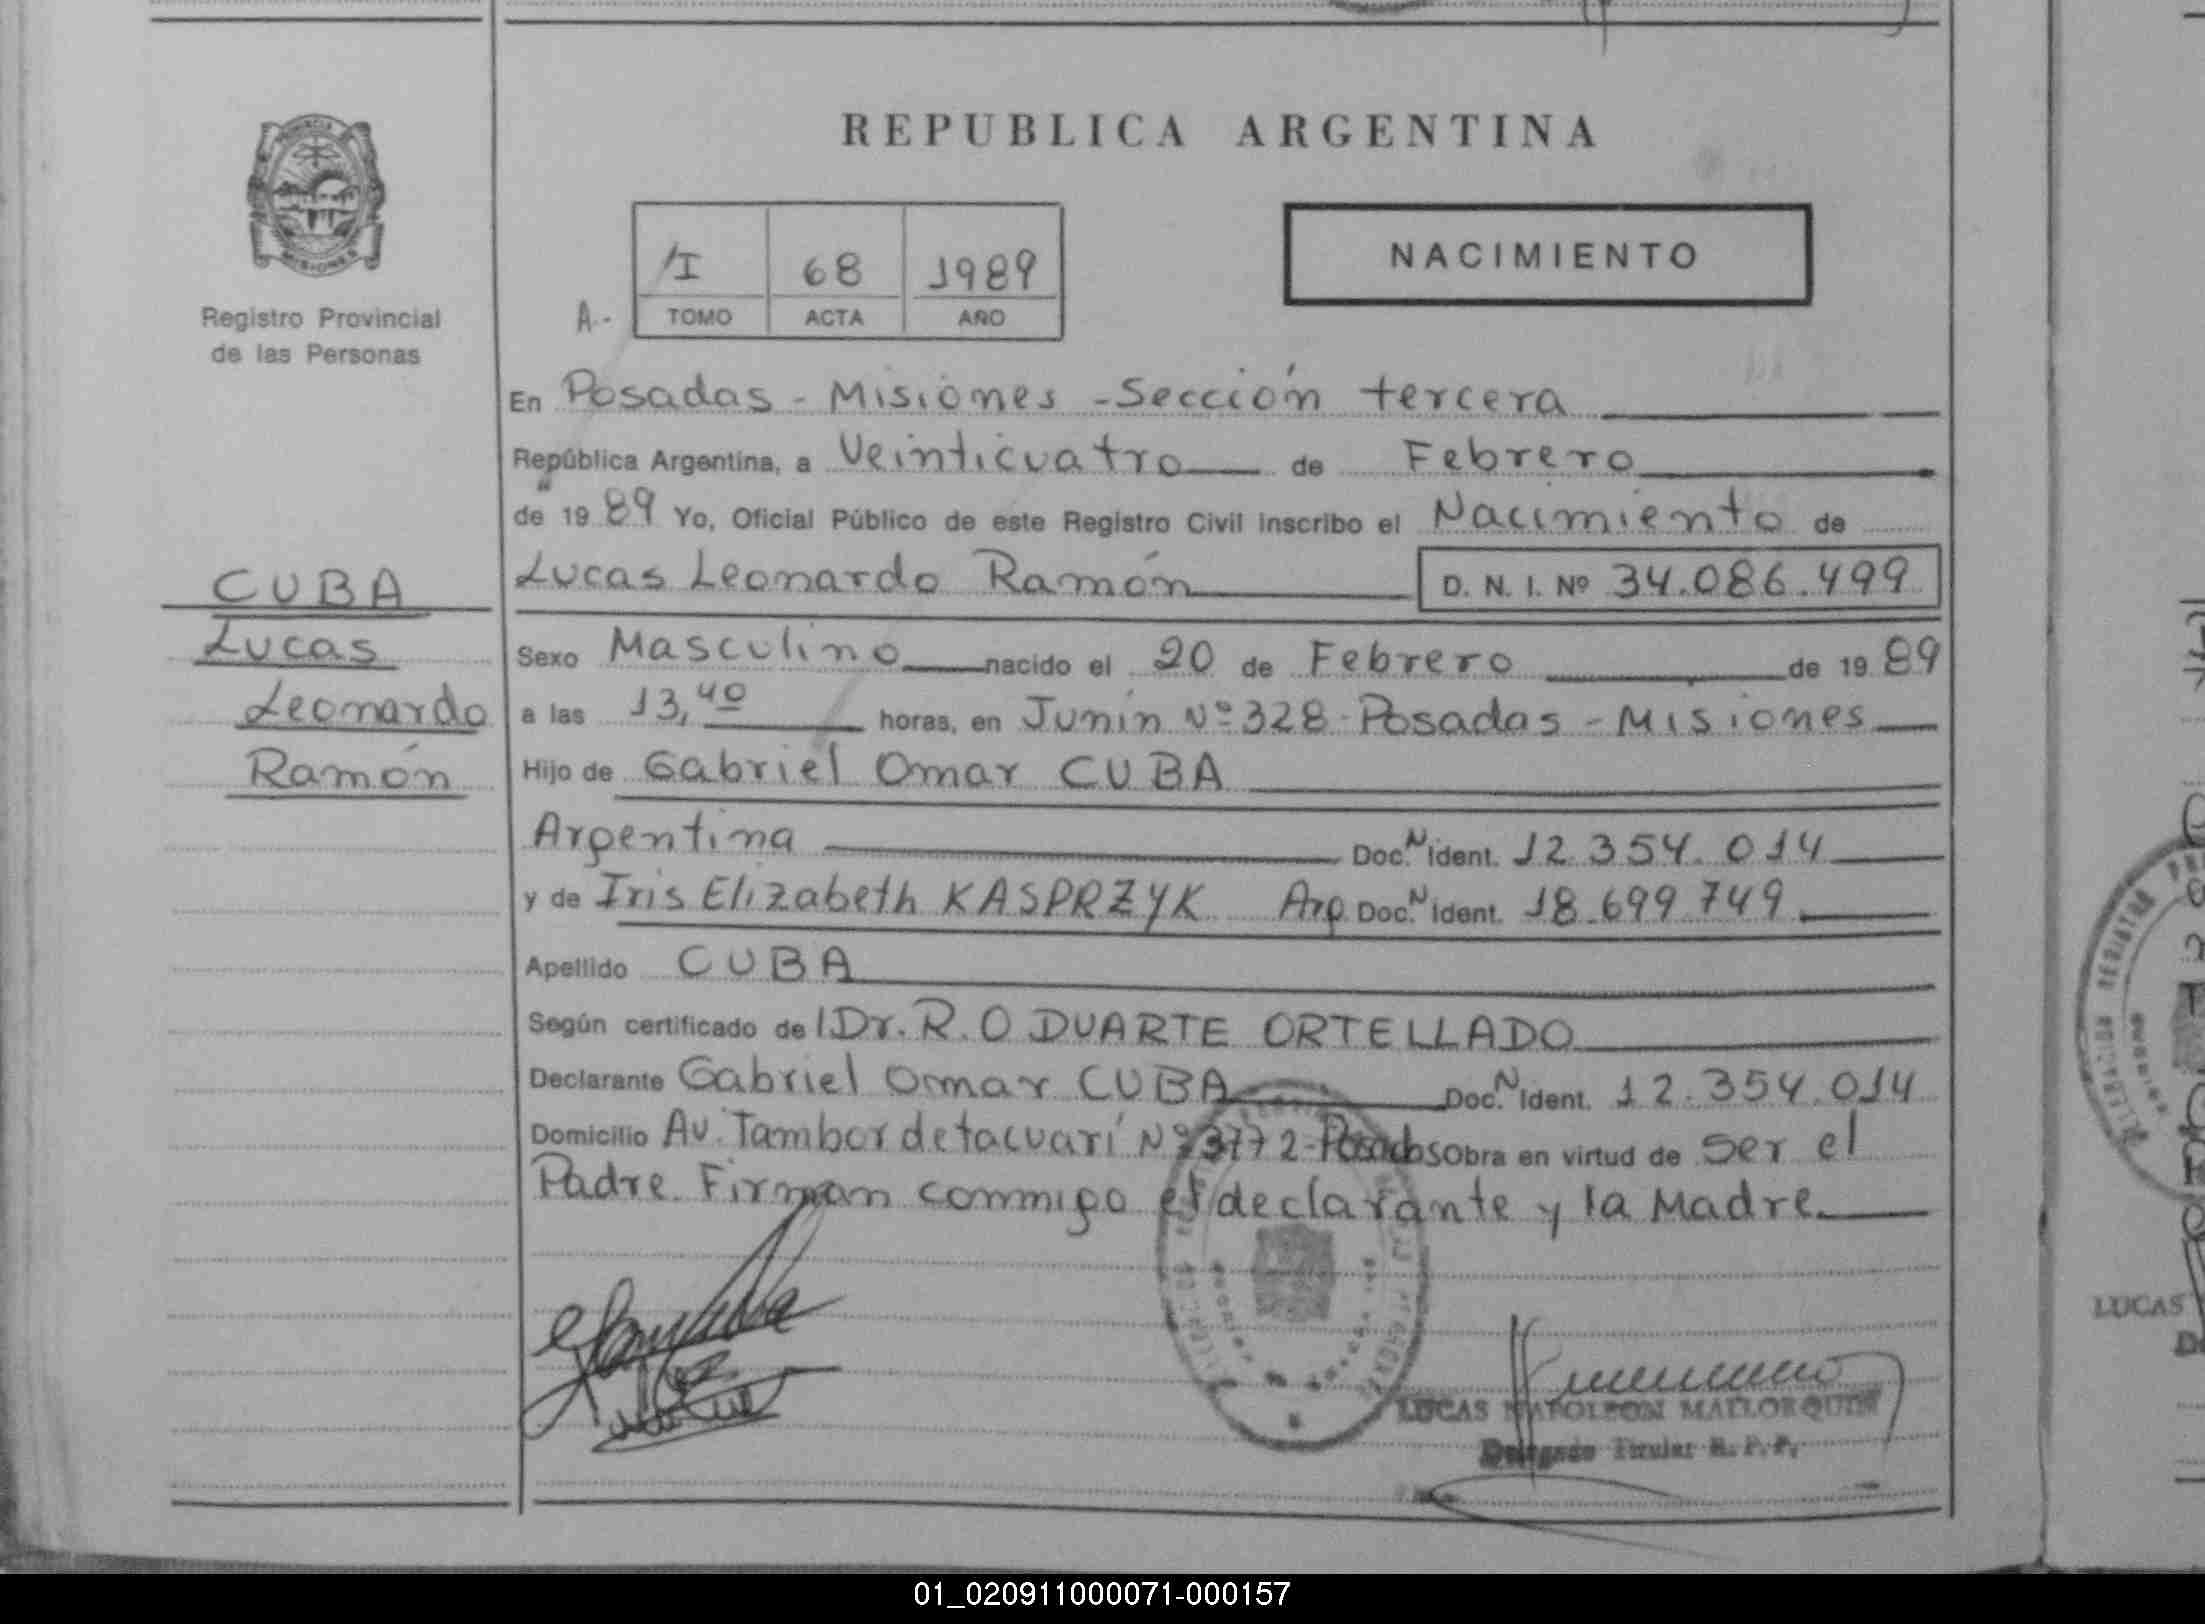 REPUBLICA ARGENTINA
PROVINCIA
MISIONES
Registro Provincial
de las Personas
/I 68 1989
A.- TOMO ACTA AÑO
NACIMIENTO
En Posadas - Misiones - Sección tercera
República Argentina, a Veinticuatro de Febrero
de 19 89 Yo, Oficial Público de este Registro Civil inscribo el Nacimiento de
Lucas Leonardo Ramón D. N. I. Nº 34.086.499
CUBA
Lucas
Leonardo
Ramón
Sexo Masculino nacido el 20 de Febrero de 19 89
a las 13,40 horas, en Junín Nº 328 - Posadas - Misiones
Hijo de Gabriel Omar CUBA
Argentina Doc. N Ident. 12.354.014
y de Iris Elizabeth KASPRZYK Arg. Doc. N Ident. 18.699.749
Apellido CUBA
Según certificado de Dr. R. O DUARTE ORTELLADO
Declarante Gabriel Omar CUBA Doc. N Ident. 12.354.014
Domicilio Av. Tambor de tacuarí Nº 3772 - Posadas Obra en virtud de ser el
Padre. Firman conmigo el declarante y la Madre.
LUCAS NAPOLEON MALLORQUIN
Delegado Titular R. P. P.
LUCAS
01_020911000071-000157